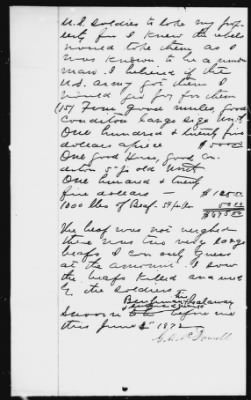 U.S. Soldiers to take my prop
erty for I knew the rebels
would take them as I
was known to be a union
man. I believed if the
U.S. army got them I
would get pay for them
(15) Four good mules, good
condition large size worth
One hundred & twenty five
dollars apiece $500.00
One good Horse, good con
dition 5 yr old worth
One hundred & twenty
five dollars $125.00
1000 lbs of Beaf 50.00
$675.00
The beaf was not weighed
there was two very large
beafs I can only guess
at the amount. I saw
the beafs killed and used
by the soldiers
Benjamin
Sworn to before me
this June 1st 1872